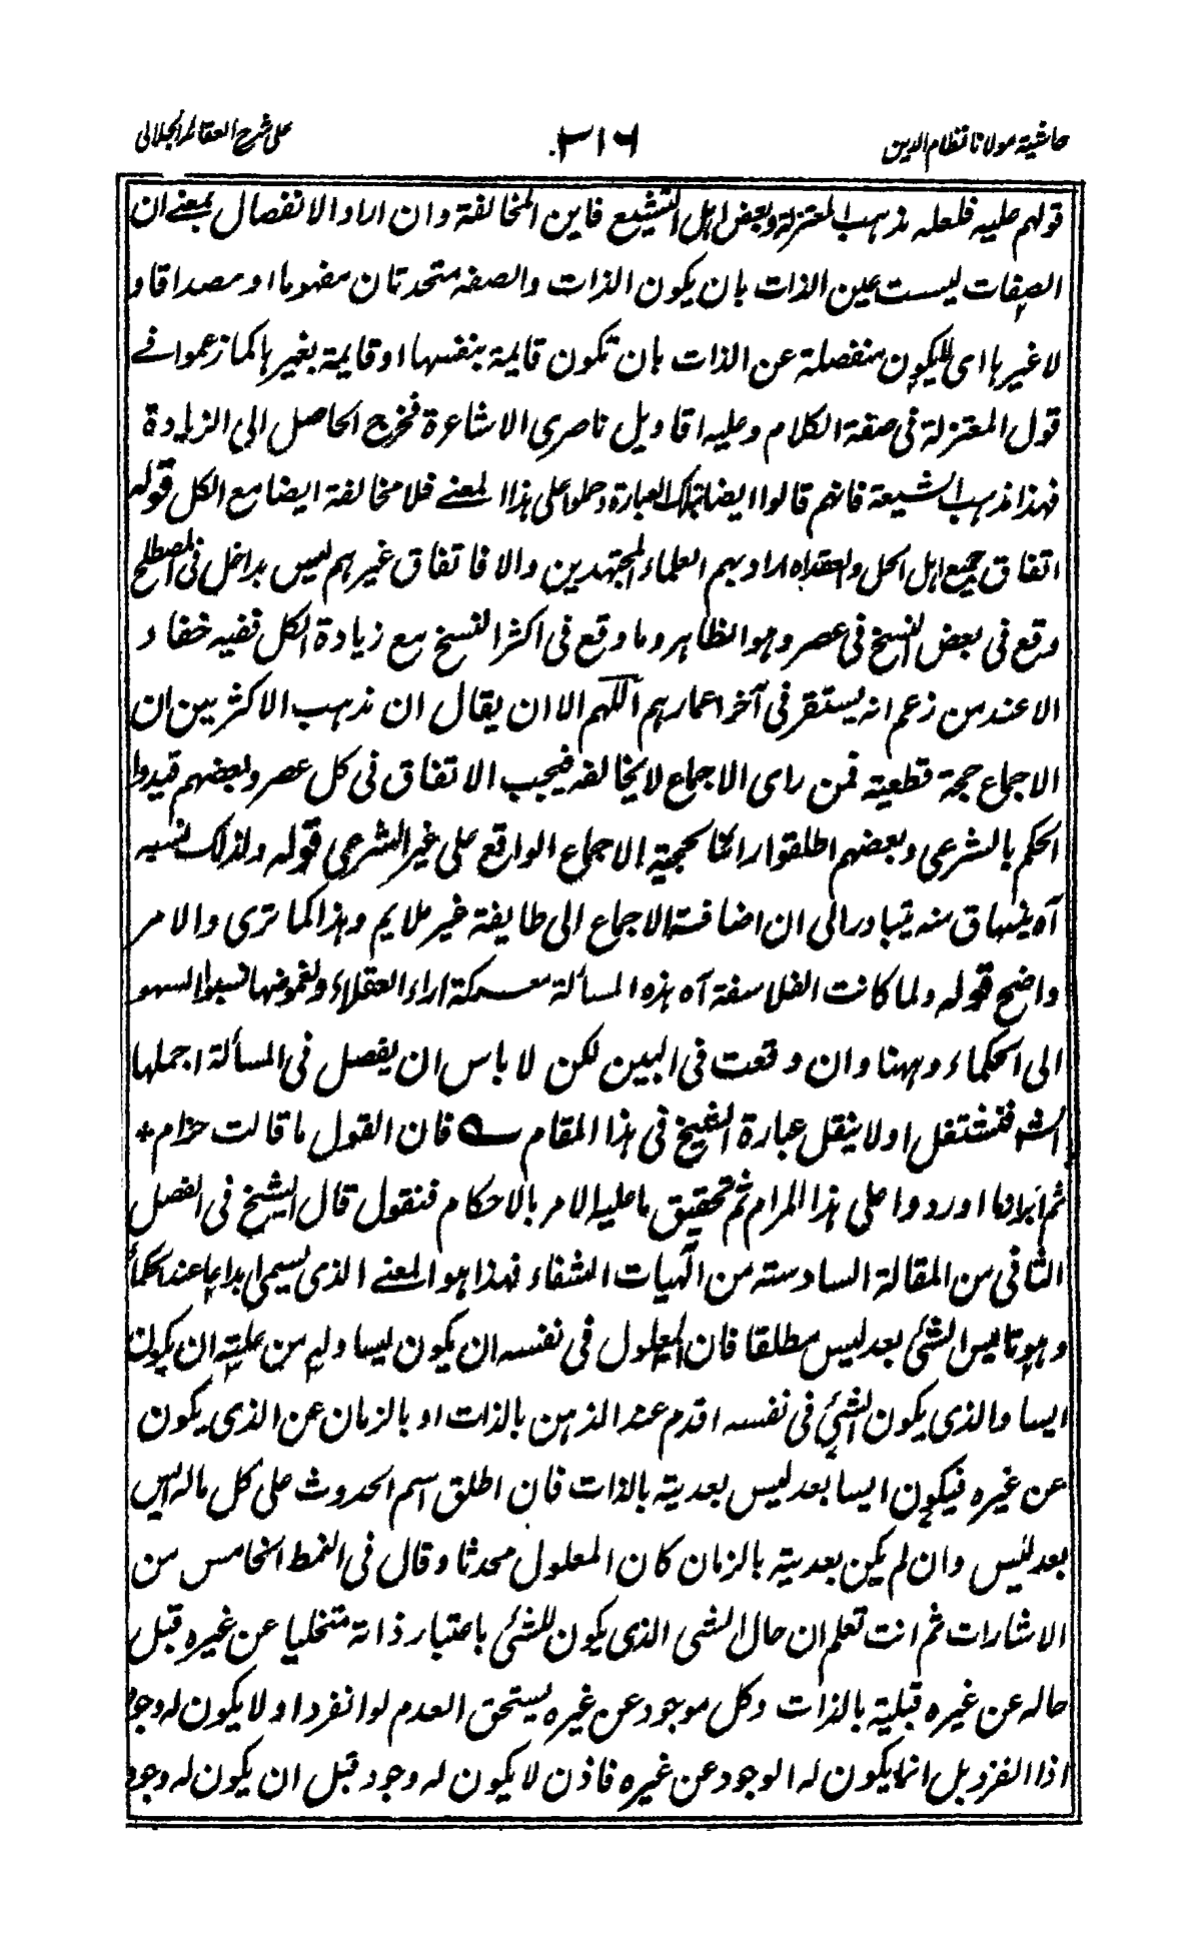 حاشية مولانا نظام الدين
٣١٦
على شرح العقائد الجلالى
قولهم عليه فلعله مذهب المعتزلة وبعض اهل التشيع فاين المخالفة وان اراد الانفصال بمعنے ان
الصفات ليست عين الذات بان يكون الذات والصفة متحدتان مفهوما او مصداقا و
لا غيرها اى لا يكون منفصلة عن الذات بان تكون قايمة بنفسها او قايمة بغيرها كما زعموا فے
قول المعتزلة فى صفة الكلام وعليه اقاويل ناصرى الاشاعرة فخرج الحاصل الى الزيادة
فهذا مذهب الشيعة فانهم قالوا ايضا بتلك العبارة وحملوا على هذا المعنے فلا مخالفة ايضا مع الكل قوله
اتفاق جميع اهل الحل والعقد اه اراد بهم العلماء المجتهدين والا فاتفاق غيرهم ليس بداخل فى المصطلح
وقع فى بعض النسخ فى عصر وهو الظاهر وما وقع فى اكثر النسخ مع زيادة الكل ففيه خفاء
الا عند من زعم انه يستقر فى آخر اعمارهم اللهم الا ان يقال ان مذهب الاكثر بين ان
الاجماع حجة قطعية فمن راى الاجماع لا يخالفه فيجب الاتفاق فى كل عصر وبعضهم قيدوا
الحكم بالشرعى وبعضهم اطلقوا رائما لحجية الاجماع الواقع على غير الشرعى قوله ولذلك نسبه
آه ينساق منه يتبادر الى ان اضافة الاجماع الى طايفة غير ملايم وهذا كما ترى والامر
واضح قوله ولما كانت الفلاسفة آه هذه المسألة معركة اراء العقلاء ولغموضها نسبوا السهو
الى الحكماء وههنا وان وقعت فى البين لكن لا باس ان يفصل فى المسألة اجملها
الش فنشتغل اولا ينقل عبارة الشيخ فى هذا المقام فان القول ما قالت حزام
ثم ايراد ما اوردوا على هذا المرام ثم تحقيق ما عليه الامر بالاحكام فنقول قال الشيخ فى الفصل
الثانى من المقالة السادسة من الٓهيات الشفاء فهذا هو المعنے الذى يسمى ابداعا عند الحكماء
وهو تاييس الشئ بعد ليس مطلقا فان للمعلول فى نفسه ان يكون ليسا وله من علته ان يكون
ايسا والذى يكون للشئ فى نفسه اقدم عند الذهن بالذات او بالزمان عن الذى يكون
عن غيره فيكون ايسا بعد ليس بعدية بالذات فان اطلق اسم الحدوث على كل ماله ايس
بعد ليس وان لم يكن بعدية بالزمان كان المعلول محدثا وقال فى النمط الخامس من
الاشارات ثم انت تعلم ان حال الشى الذى يكون للشئ باعتبار ذاته متخليا عن غيره قبل
حاله عن غيره قبلية بالذات وكل موجود عن غيره يستحق العدم لو انفرد او لا يكون له وجود
اذا انفرد بل انما يكون له الوجود عن غيره فاذن لا يكون له وجود قبل ان يكون له وجود